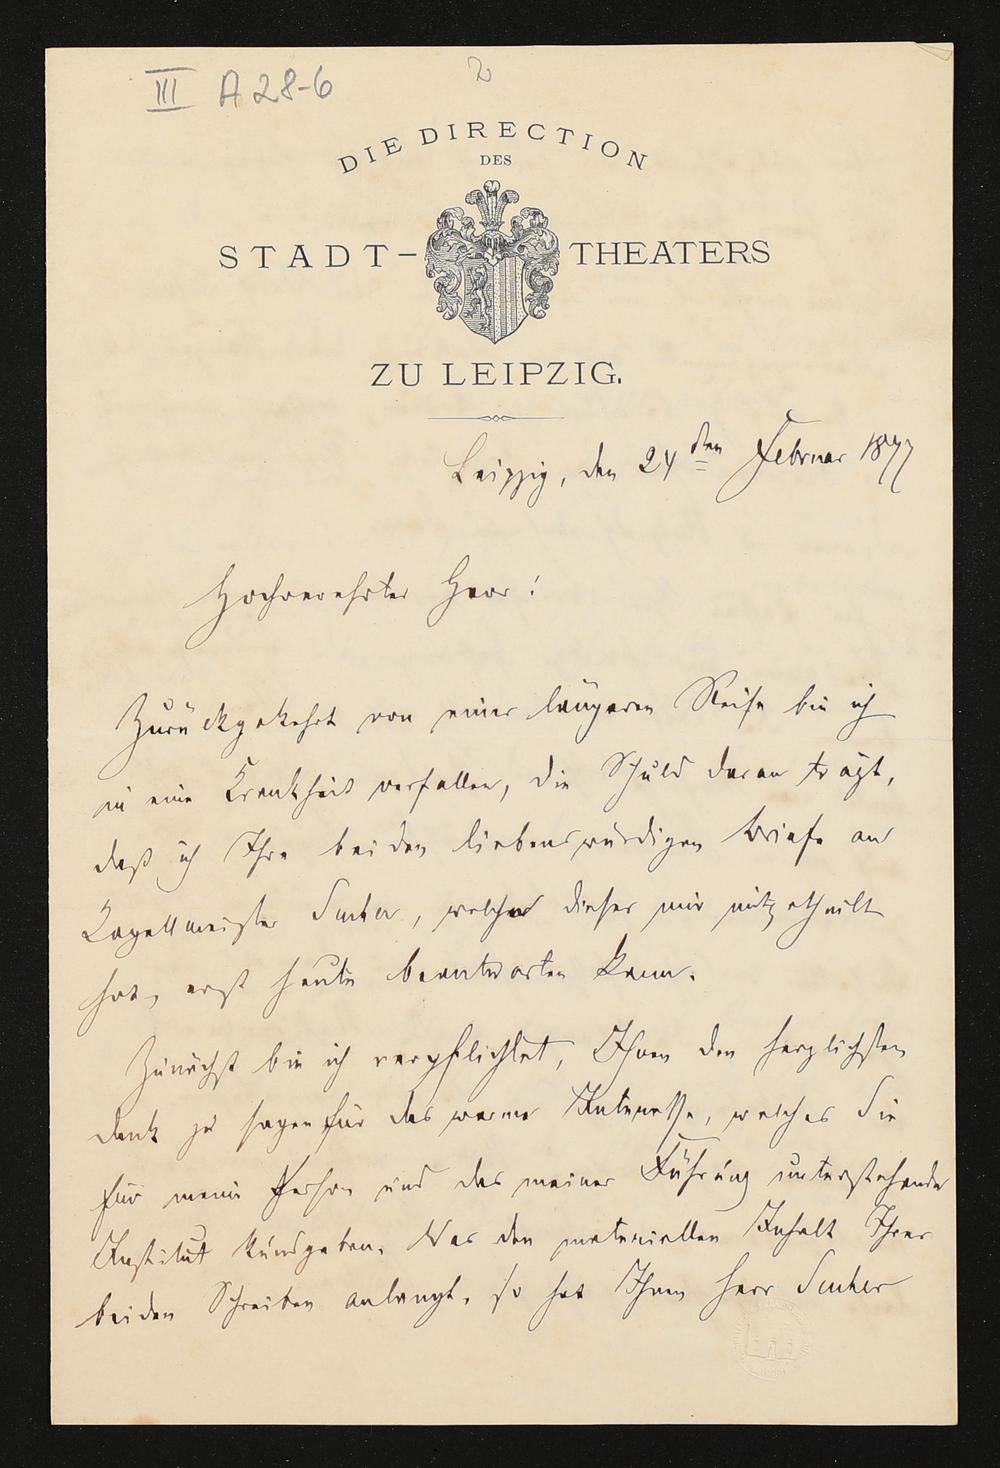 III A 28-6
2
DIE DIRECTION
DES
STADT-THEATERS
ZU LEIPZIG.
Leipzig, den 24sten Februar 1877
Hochverehrter Herr!
Zurückgekehrt von einer längeren Reise bin ich
in eine Krankheit verfallen, die Schuld daran trägt,
daß ich Ihre beiden liebenswürdigen Briefe an
Kapellmeister Sucher, welche dieser mir mitgetheilt
hat, erst heute beantworten kann.
Zunächst bin ich verpflichtet, Ihnen den herzlichsten
Dank zu sagen für das warme Interesse, welches Sie
für meine Person und das meiner Führung unterstehende
Institut kundgeben. Was den materiellen Inhalt Ihrer
beiden Schreiben anlangt, so hat Ihnen Herr Sucher